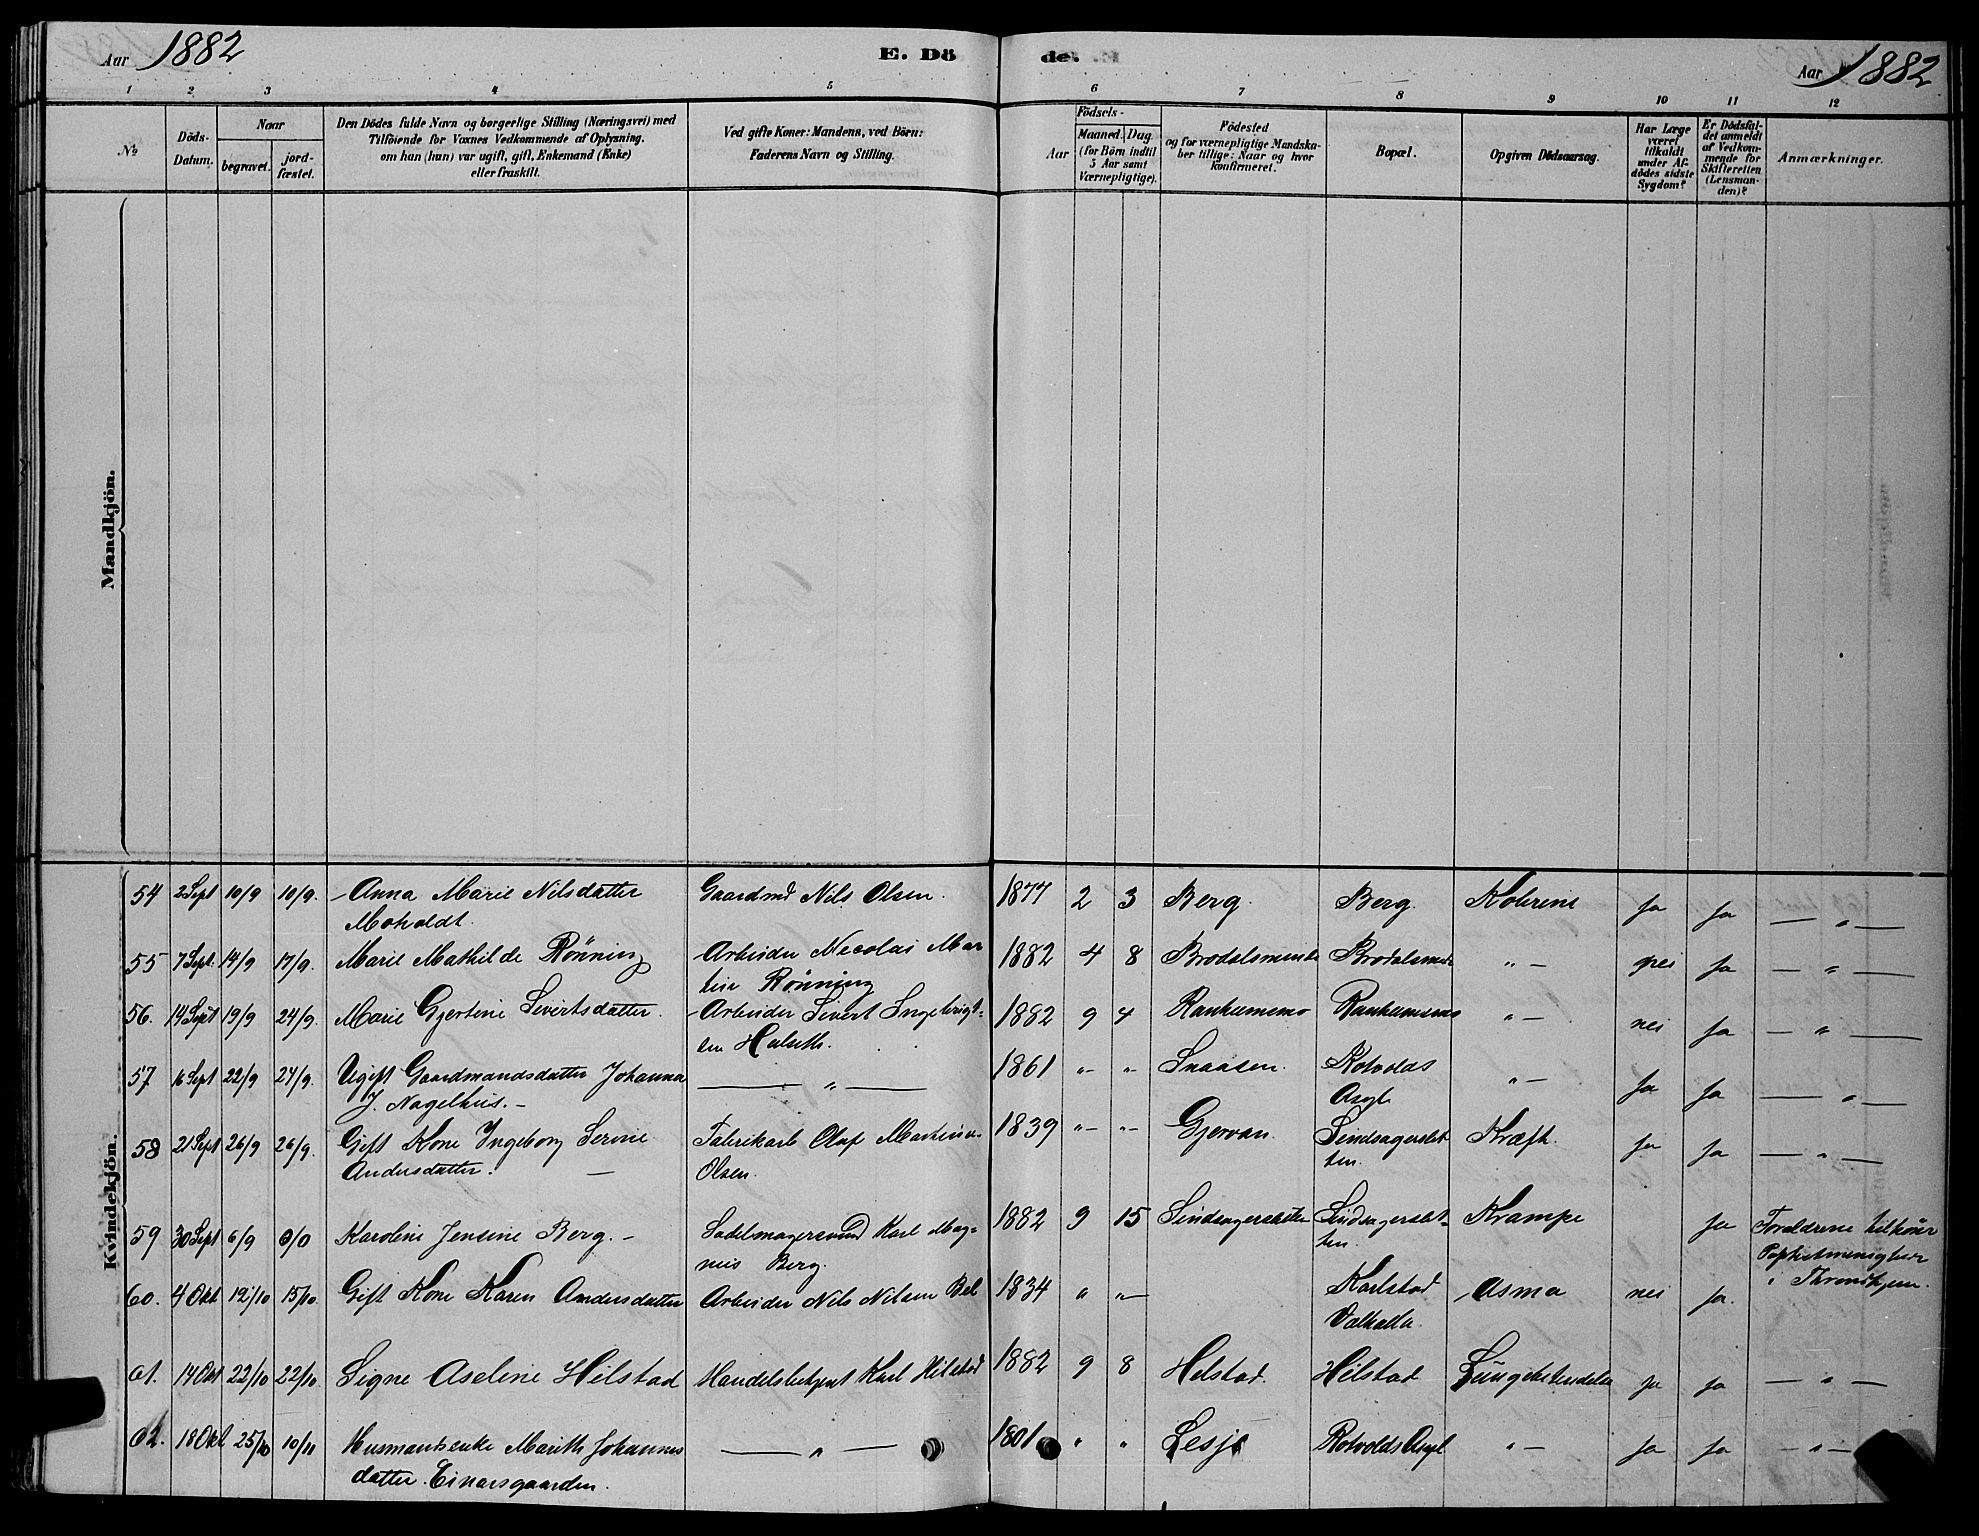 Aar 1882 E. Dö de. Aar 1882
1 2 3 4 5 6 7 8 9 10 11 12
No
Döds-Datum.
Naar
begravet. jord-fæstet.
Den Dödes fulde Navn og borgerlige Stilling (Næringsvei) med
Tilföiende for Voxnes Vedkommende af Oplysning.
om han (hun) var ugift, gift, Enkemand (Enke)
eller fraskilt.
Ved gifte Koner: Mandens, ved Börn:
Faderens Navn og Stilling.
Födsels-
Aar Maaned. Dag.
(for Börn indtil
5 Aar samt
Værnepligtige).
Födested
og for værnepligtige Mandska-
ber tillige: Naar og hvor
konfirmeret.
Bopæl.
Opgiven Dödsaarsag.
Har Læge
været
tilkaldt
under Af-
dödes sidste
Sygdom?
Er Dödsfal-
det anmeldt
af Vedkom-
mende for
Skifteretten
(Lensman-
den)?
Anmærkninger.
Mandkjön.
Kvindekjön.
54 2 Sept 10/9 10/9. Anna Marie Nilsdatter Gaardmd Nils Olsen. 1877 2 3 Berg. Berg. Kolerine Ja Ja — „ —
Moholdt.
55 7 Sept. 14/9 17/9. Marie Mathilde Rönning Arbeider Necolai Mar 1882 4 8 „ — nei Ja — „ —
tin Rönning
56. 14 Sept 19/9 24/9. Marie Gjertine Sivertsdatter. Arbeider Sivert Ingebrigt- 1882 9 4 Ranheimsmo Ranheimsmo „ — nei Ja — „ —
sen Halseth.
57 16 Sept 22/9 24/9. Ugift Gaardmandsdatter Johanna — „ — 1861 „ — „ — Snaasen. Rotvolds „ — Ja Ja — „ —
J. Nagelhus. — Asyl
58 21 Sept 26/9 26/9. Gift Kone Ingeborg Serine Fabrikarb Olaf Martinus 1839 „ — „ — Gjervan. Kræft. Ja Ja — „ —
Andersdatter. — Olsen.
59 30 Sept 6/9 Karoline Jensine Berg. — Sadelmagersvend Karl Mag- 1882 9 15 Krampe Ja Forældrene tilhører
nus Berg. Baptistmenigheden
i Throndhjem.
60. 4 Okt 12/10 15/10. Gift Kone Karen Andersdatter Arbeider Nils Nilsen Bal 1834 „ „ — Karlstad Asma nei Ja.
Valhalla.
61. 14 Okt 22/10 22/10 Signe Aseline Hilstad Karl Hilstad 1882 9 8 Helstad. Hilstad Lungebetendelse Ja Ja — „ —
62. 18 Okt 25/10 10/11 Husmandsenke Marith Johannes — „ — 1801 „ „ Lesje Rotvolds Asyl „ — Ja Ja — „ —
datter. Einarsgaarden.